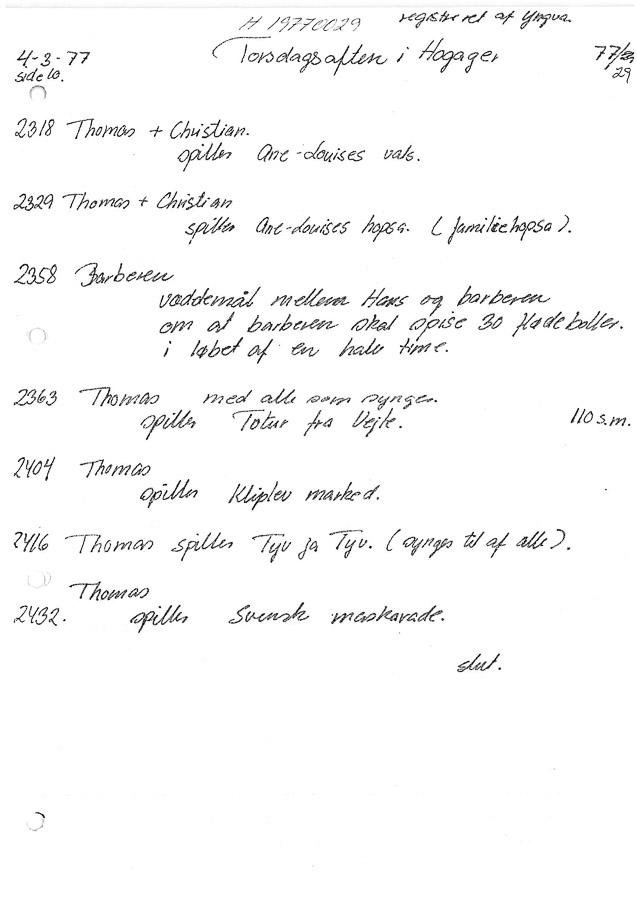 H 19770029 registreret af Yngva.
4-3-77 Torsdagsaften i Hogager 77/
side 10. 29
2318 Thomas + Christian.
spiller Ane-Louises vals.
2329 Thomas + Christian
spiller Ane-Louises hopsa. (familiehopsa).
2358 Barberen
væddemål mellem Hans og barberen
om at barberen skal spise 30 flødeboller.
i løbet af en halv time.
2363 Thomas med alle som synger.
spiller Totur fra Vejle. 110 s.m.
2404 Thomas
spiller Kliplev marked.
2416 Thomas spiller Tyv ja Tyv. (synges til af alle).
Thomas
2432. spiller Svensk maskarade.
slut.